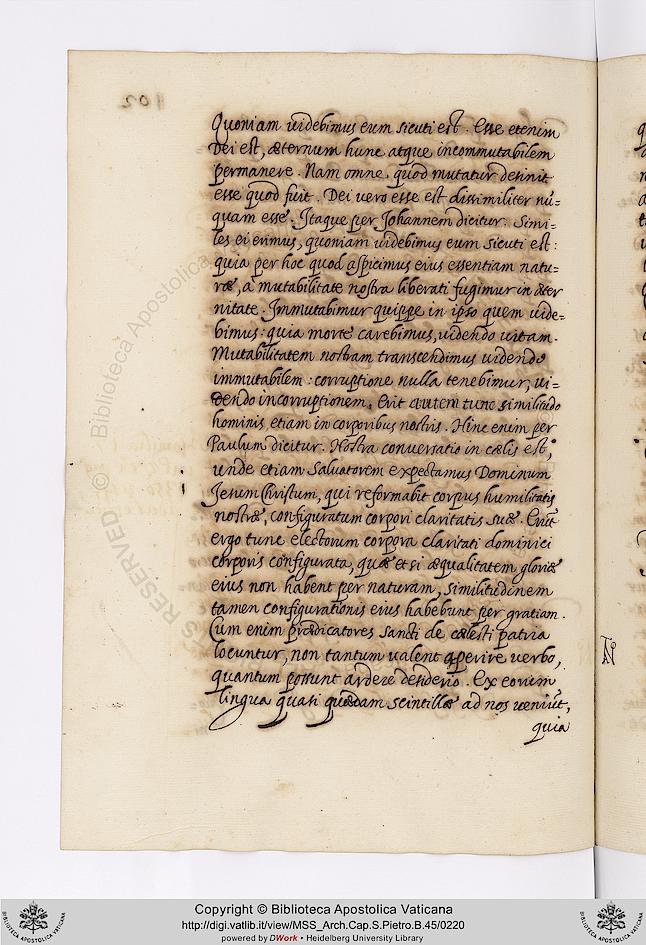 Quoniam uidebimus eum sicuti est. Esse etenim
Dei est, æternum hunc atque incommutabilem
permanere. Nam omne, quod mutatur desinit
esse quod fuit. Dei vero esse est dissimiliter nu=
quam esse. Itaque per Johannem dicitur. Simi-
les ei erimus, quoniam uidebimus eum sicuti est:
quia per hoc quod aspicimus eius essentiam natu-
ræ, a mutabilitate nostra liberati fugimur in æter
nitate. Immutabimur quippe in ipso quem uide=
bimus: quia morte carebimus, uidendo uitam.
Mutabilitatem nostram transcendimus uidendo
immutabilem: corruptione nulla tenebimur, ui=
dendo incorruptionem. Erit autem tunc similitudo
hominis etiam in corporibus nostris. Hinc enim per
Paulum dicitur. Nostra conuersatio in cælis est,
unde etiam Saluatorem expectamus Dominum
Jesum Christum, qui reformabit corpus humilitatis
nostræ, configuratum corpori claritatis suæ. Erūt
ergo tunc electorum corpora claritati dominici
corporis configurata, quæ et si æqualitatem gloriæ
eius non habent per naturam, similitudinem
tamen configurationis eius habebunt per gratiam.
Cum enim prædicatores sancti de cælesti patria
locuntur, non tantum ualent aperire uerbo,
quantum possunt ardere desiderio. Ex eorum
lingua quasi quædam scintillæ ad nos ueniūt,
quia
102
© Biblioteca Apostolica
RESERVED
Copyright © Biblioteca Apostolica Vaticana
http://digi.vatlib.it/view/MSS_Arch.Cap.S.Pietro.B.45/0220
powered by DWork • Heidelberg University Library
BIBLIOTECA APOSTOLICA VATICANA
BIBLIOTECA APOSTOLICA VATICANA